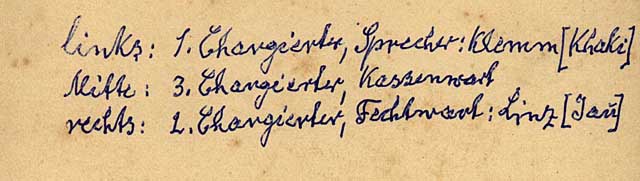 links: 1. Chargierter, Sprecher: Klemm [Khaki]
Mitte: 3. Chargierter, Kassenwart
rechts: 2. Chargierter, Fechtwart: Linz